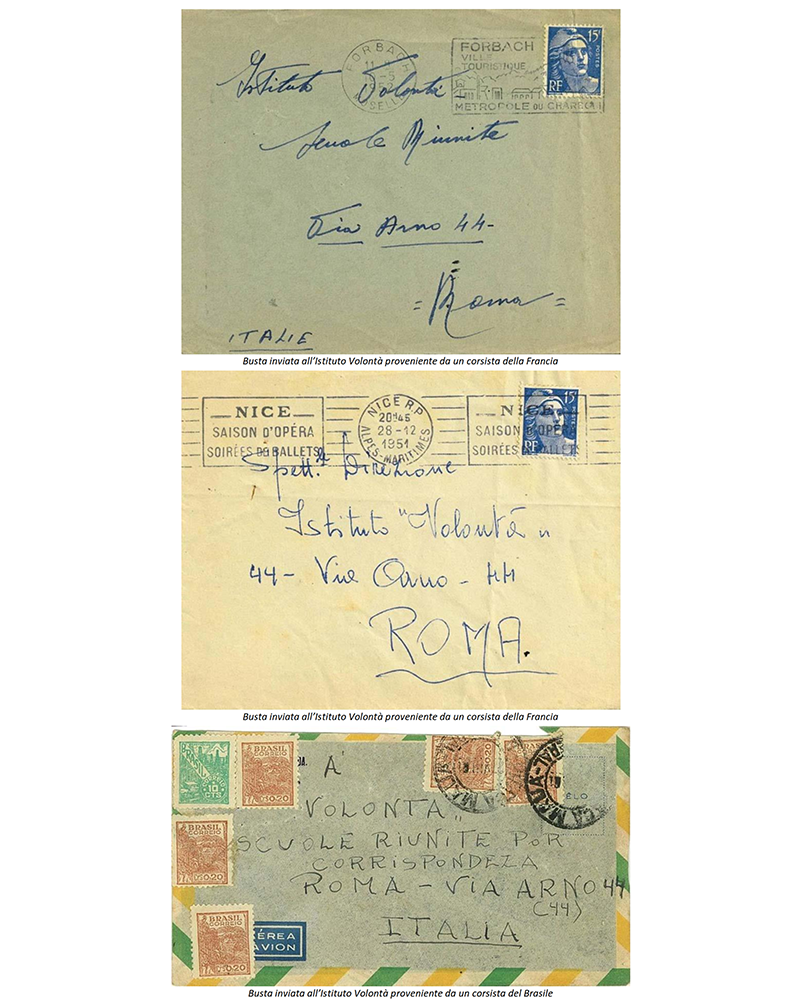 FORBACH
FORBACH
VILLE
TOURISTIQUE
METROPOLE DU CHARBON
15F
POSTES
RF
Istituto Volontà
Scuole Riunite
Via Arno 44-
= Roma =
ITALIE
Busta inviata all’Istituto Volontà proveniente da un corsista della Francia
NICE
SAISON D'OPÉRA
SOIRÉES DE BALLETS
NICE R.P.
20H45
28-12
1951
ALPES-MARITIMES
NICE
SAISON D'OPÉRA
SOIRÉES DE BALLETS
15F
RF
Spett.le Direzione
Istituto "Volontà"
44- Via Arno - 44
ROMA.
Busta inviata all’Istituto Volontà proveniente da un corsista della Francia
BRASIL
CORREIO
10
CTS
BRASIL
CORREIO
0,20
0,20
BRASIL
CORREIO
0,20
BRASIL
CORREIO
0,20
À
VOLONTA"
SCUOLE RIUNITE POR
CORRISPONDEZA
ROMA - VIA ARNO 44
(44)
ITALIA
AÉREA
AVION
Busta inviata all’Istituto Volontà proveniente da un corsista del Brasile